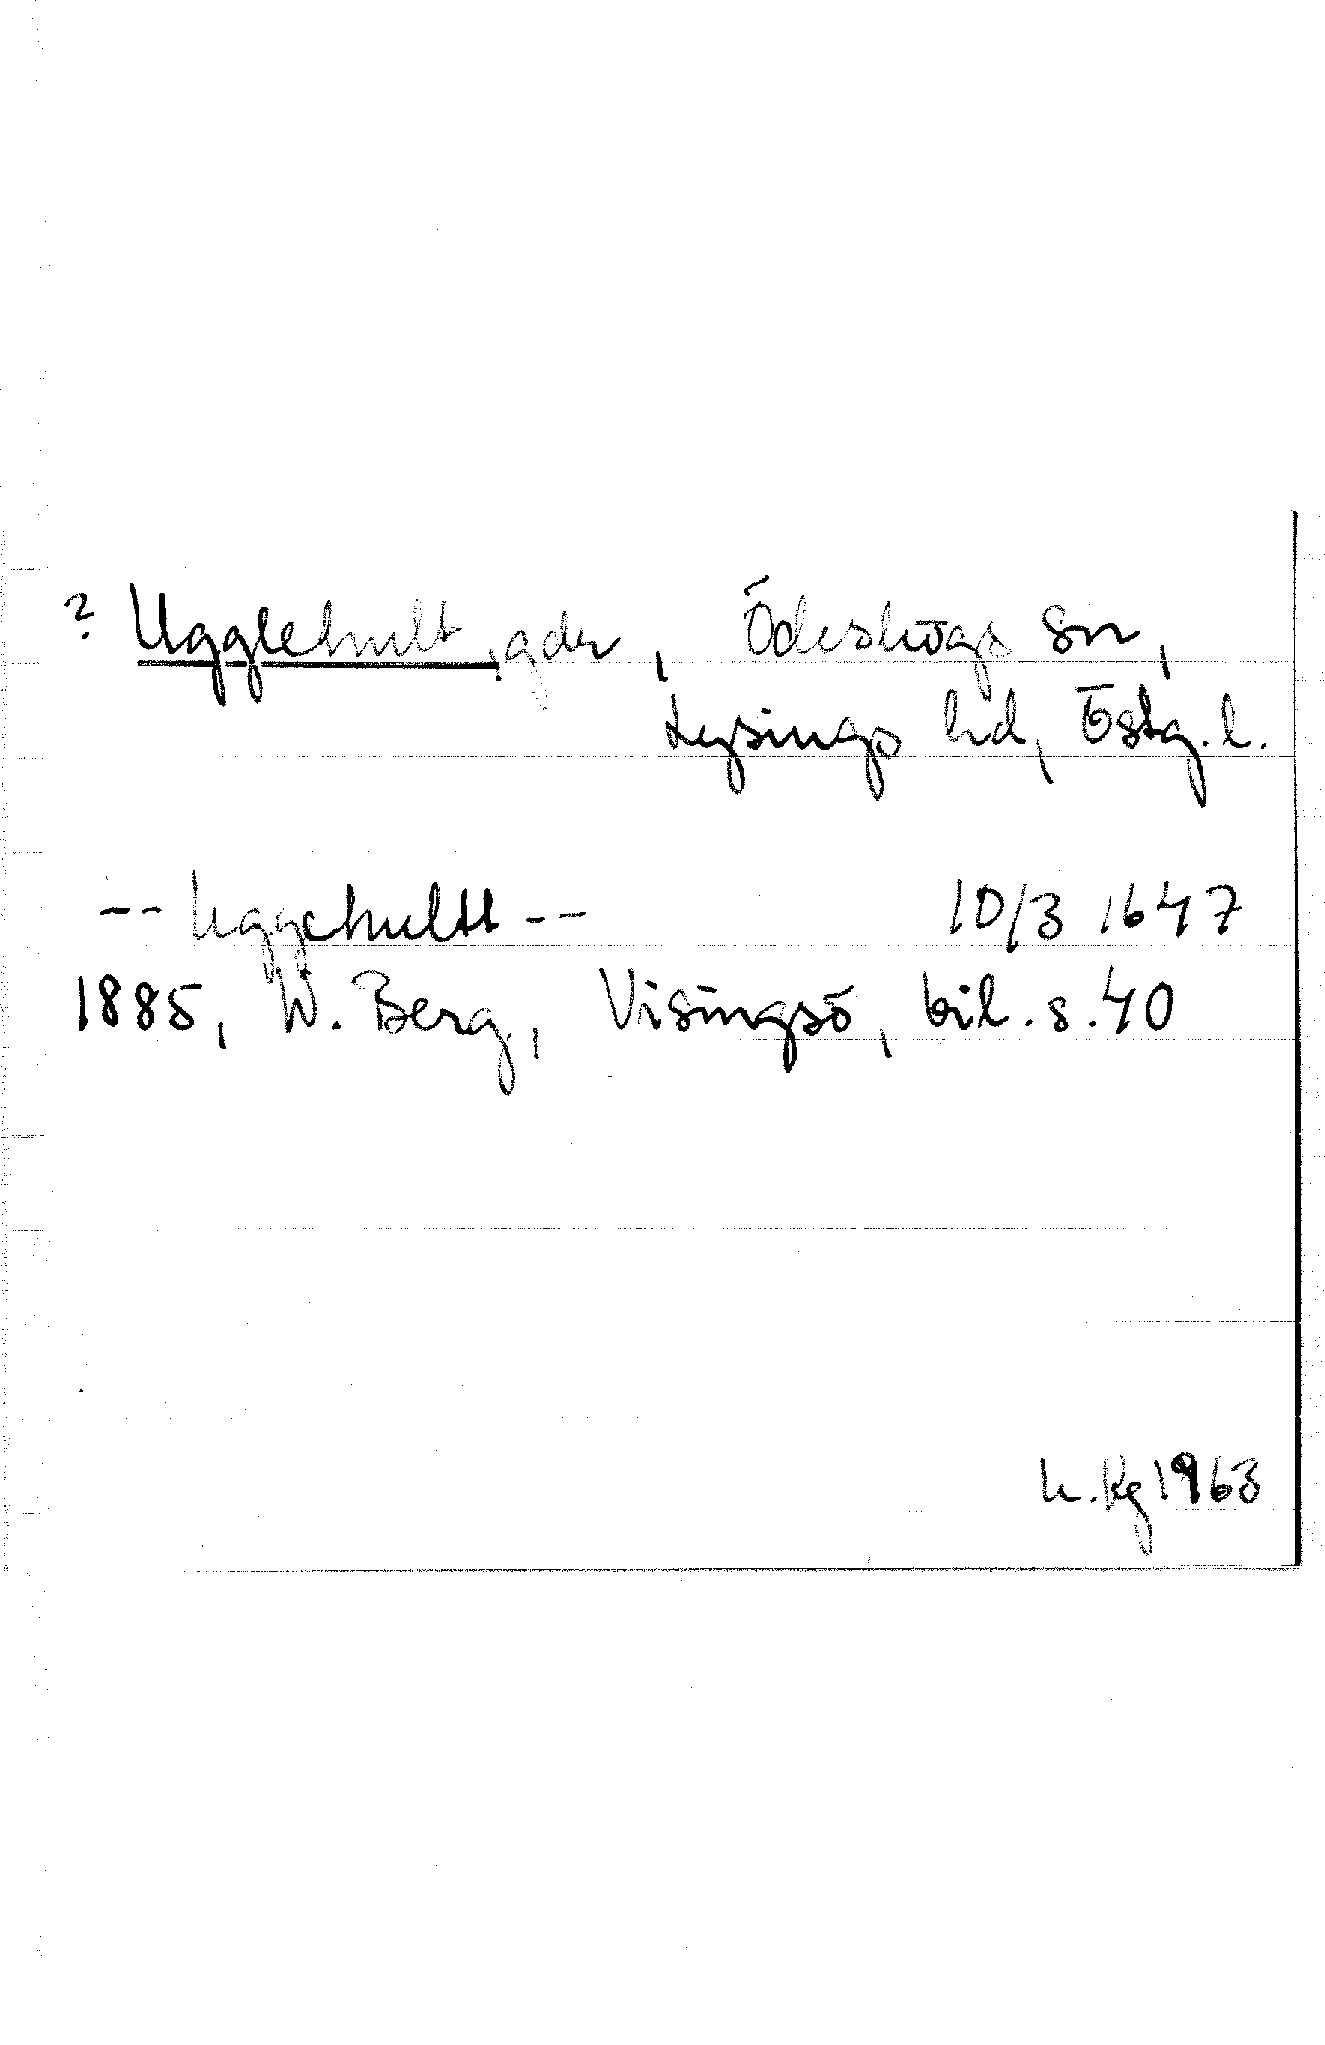 ? Ugglehult, gdr, Ödeshögs sn,
Lysings hd, Östg. l.
-- Uggehultt -- 10/3 1647
1885, W. Berg, Visingsö, bil. s. 40
h. Kg 1963